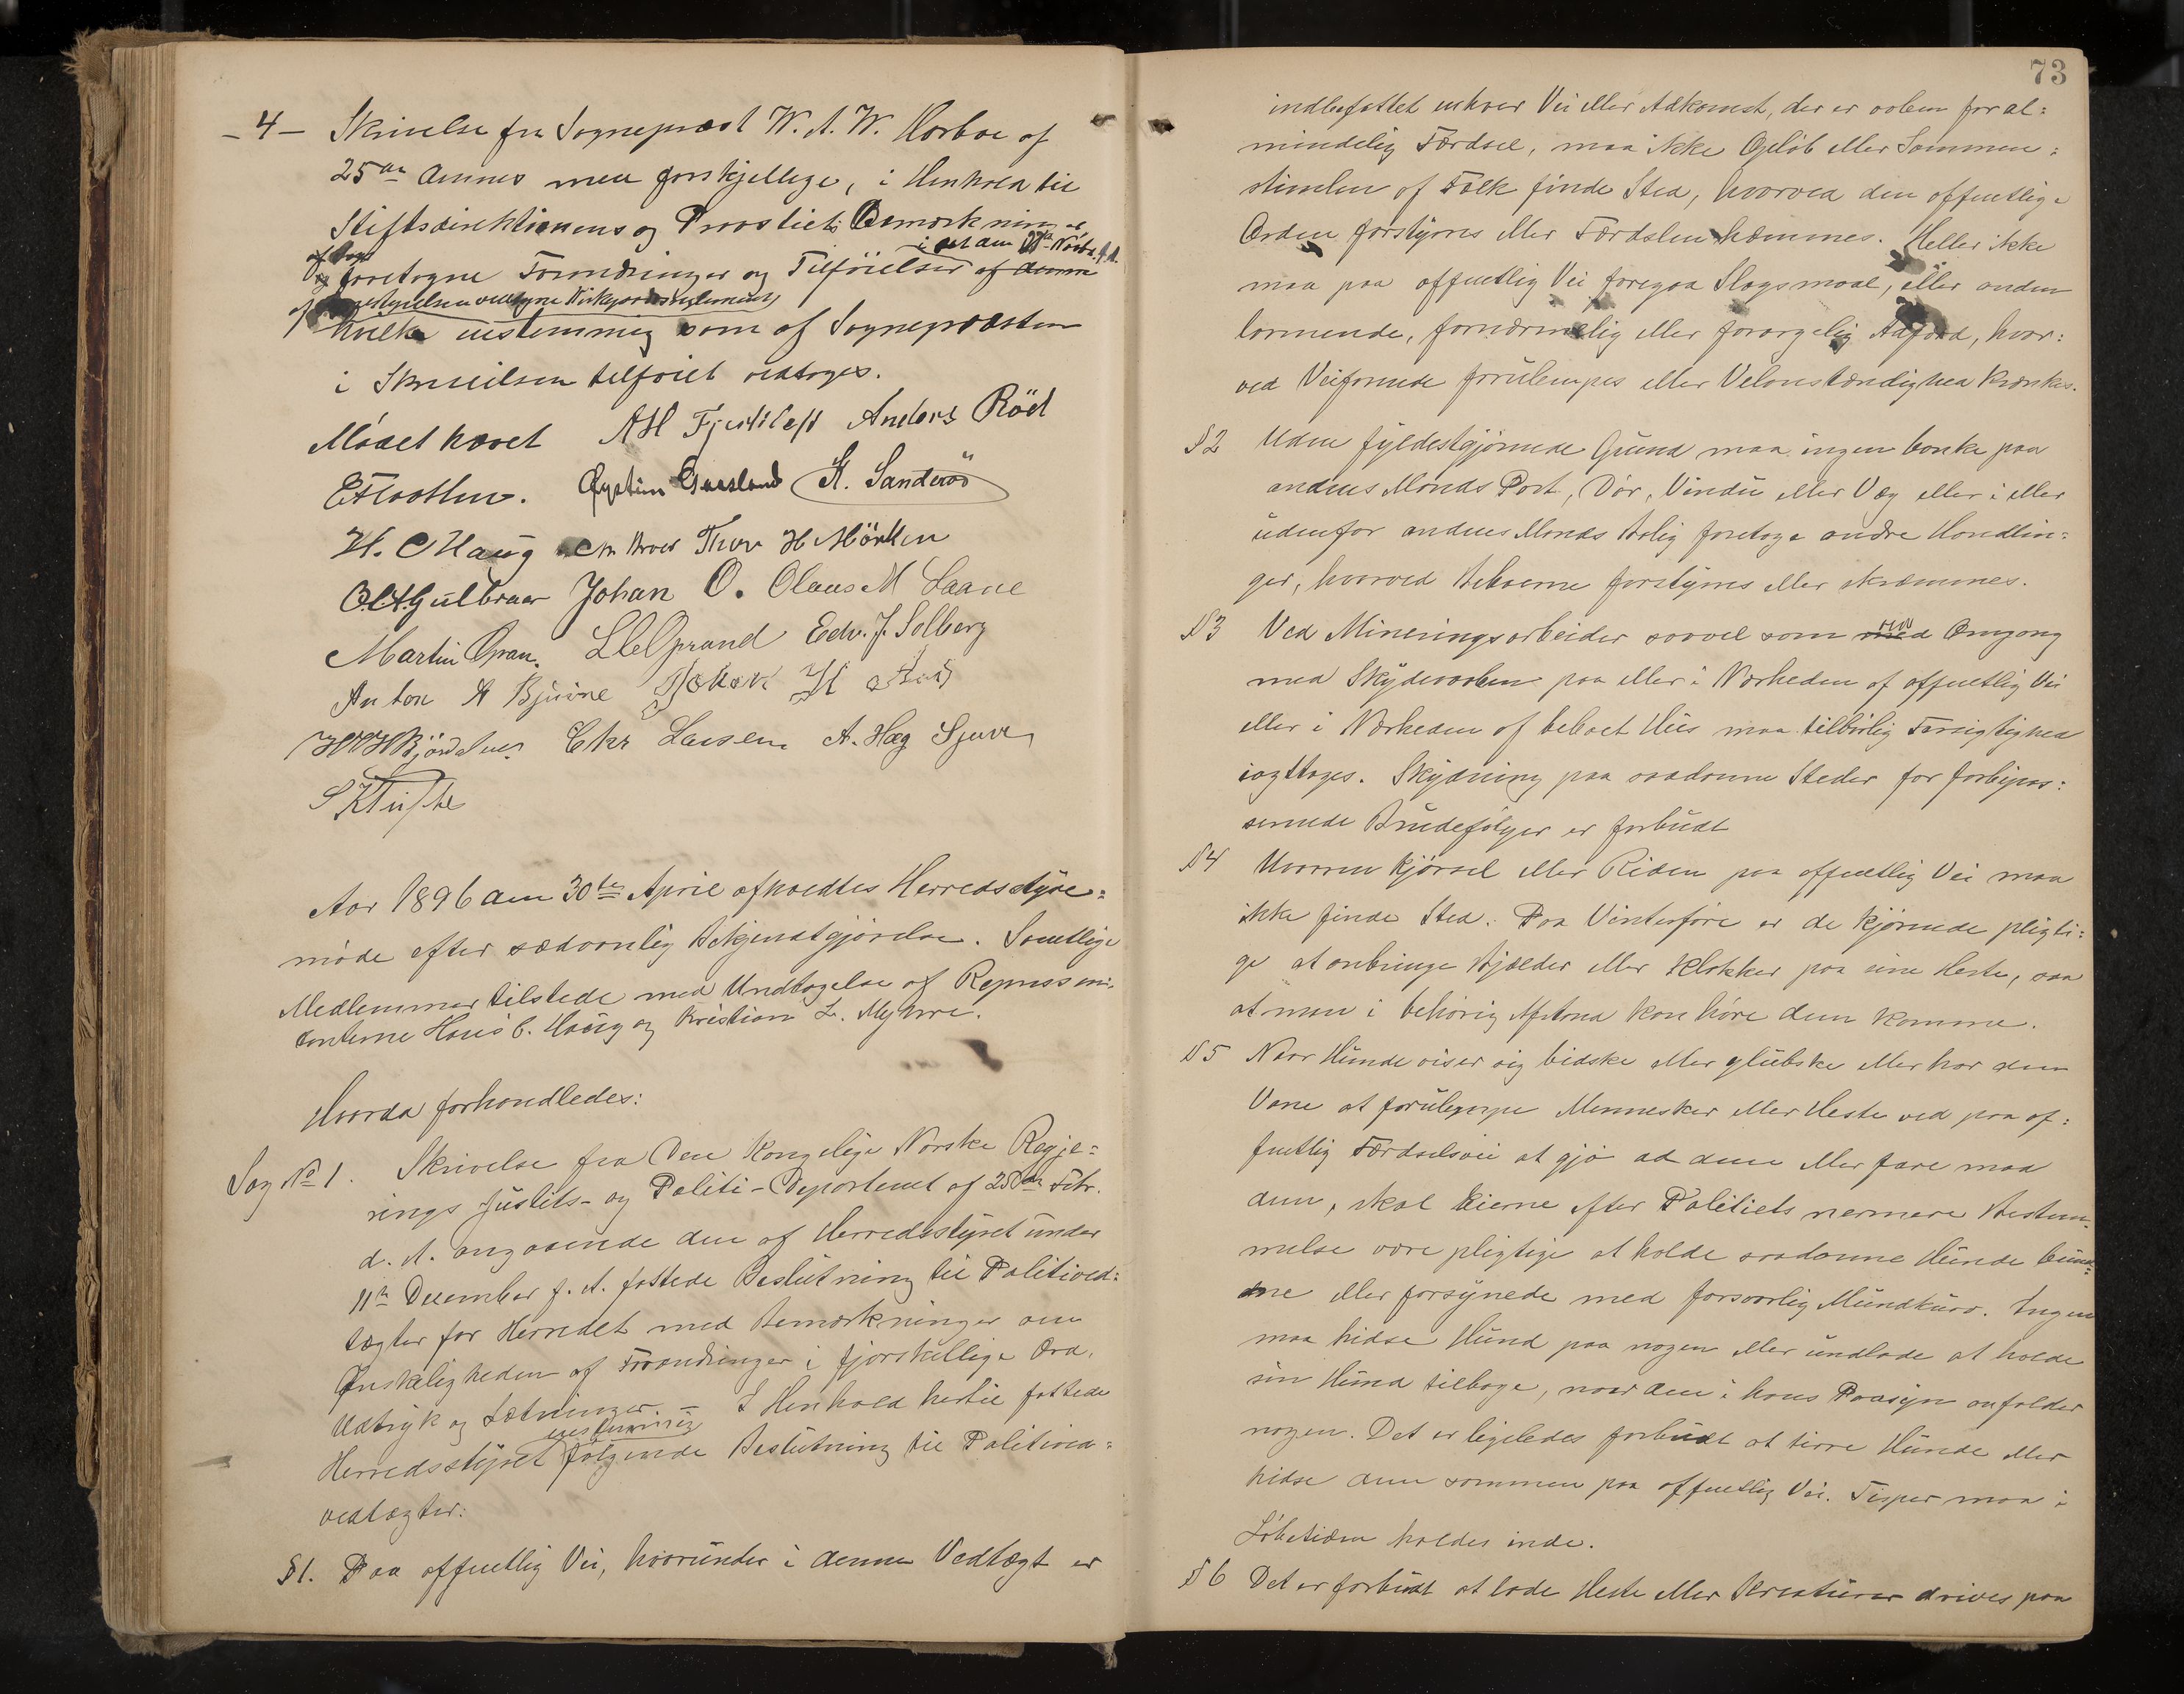 - 4 - Skrivelse fra Sogneprest W. A. W. Horboe af
25de dennes med forskjellige, i Henhold til
Stiftsdirektionens og Provstiets Bemærkninger
af ham i det den 11te Novbr. f. A.
foretagne Forandringer og Tilføielser af denne
af Herredsstyrelsen vedtagne Kirkegaardsreglement,
hvilke enstemmig som af Sognepræsten
i Skrivelsen tilføiet vedtoges.
Mødet hævet A H Fjeldløst Anders Röd
Øystein Gaasland A. Sanderöd
H. C Haug Thor H Mörken
O. A. Gulbraar Johan O. Olaus M Laane
Martin Opran. L Oprand Edv. J. Solberg
Anton A Bjuine H
H Bjørdalen Chr Larsen A. Hag Sjuve
S Klufte
Aar 1896 den 30te April afholdtes Herredsstyre=
møde efter sædvanlig Bekjendtgjørelse. Samtlige
Medlemmer tilstede med Undtagelse af Repræsen=
tanterne Hans C. Haug og Kristian L. Myhre.
Hvorda forhandledes:
Sag No 1. Skrivelse fra Den Kongelige Norske Regje=
rings Justits- og Politi-Departemet af 25de Febr.
d. A. angaaende den af Herredsstyret under
11te December f. A. fattede Beslutning til Politived=
tægter for Herredet med Bemærkninger om
Ønskeligheden af Forandringer i fjorskillige Ord,
Udtryk og Sætninger. – I Henhold hertil fattede
enstemmig
Herredsstyret følgende Beslutning til Politived=
vedtægter:
§1. Paa offentlig Vei, hvorunder i denne Vedtægt er
73
indbefattet enhver Vei eller Adkomst, der er aaben for al=
mindelig Færdsel, maa ikke Opløb eller Sammen=
stimlen af Folk finde Sted, hvorved den offentlige
Orden forstyrres eller Færdslen hæmmes. Heller ikke
maa paa offentlig Vei foregaa Slagsmaal, eller anden
larmende, fornærmelig eller forargelig Adfærd, hvor=
ved Veifarende forulempes eller Velanstændighed krænkes.
§2 Uden fyldestgjørende Grund maa ingen banke paa
andens Mands Port, Dør, Vindu eller Væg eller i eller
udenfor andens Mands Bolig foretage andre Handlin=
ger, hvorved Beboerne forstyrres eller skræmmes.
§3 Ved Mineringsarbeider saavel som med ved Omgang
med Skydevaaben paa eller i Nærheden af offentlig Vei
eller i Nærheden af beboet Hus maa tilbørlig Forsigtighed
iagttages. Skydning paa saadanne Steder for forbipas=
serende Brudefølger er forbudt
§4 Uvorren Kjørsel eller Riden paa offentlig Vei maa
ikke finde Sted. Paa Vinterføre er de kjørende pligti=
ge at anbringe Bjælder eller Klokker paa sine Heste, saa
at man i behørig Afstand kan høre dem komme.
§5 Naar Hunde viser sig bidske eller glubske eller har den
Vane at forulempe Mennesker eller Heste ved paa of=
fentlig Færdselsvei at gjø ad dem eller fare mod
dem, skal Eierne efter Politiets nermere Bestem=
melse være pligtige at holde saadanne Hunde bund=
dne eller forsynede med forsvarlig Mundkurv. Ingen
maa hidse Hund paa nogen eller undlade at holde
sin Hund tilbage, naar den i hans Paasyn anfalder
nogen. Det er ligeledes forbudt at tirre Hunde eller
hidse dem sammen paa offentlig Vei. Tisper maa i
Løbetiden holdes inde.
§6 Det er forbudt at lade Heste eller Kreaturer drives paa